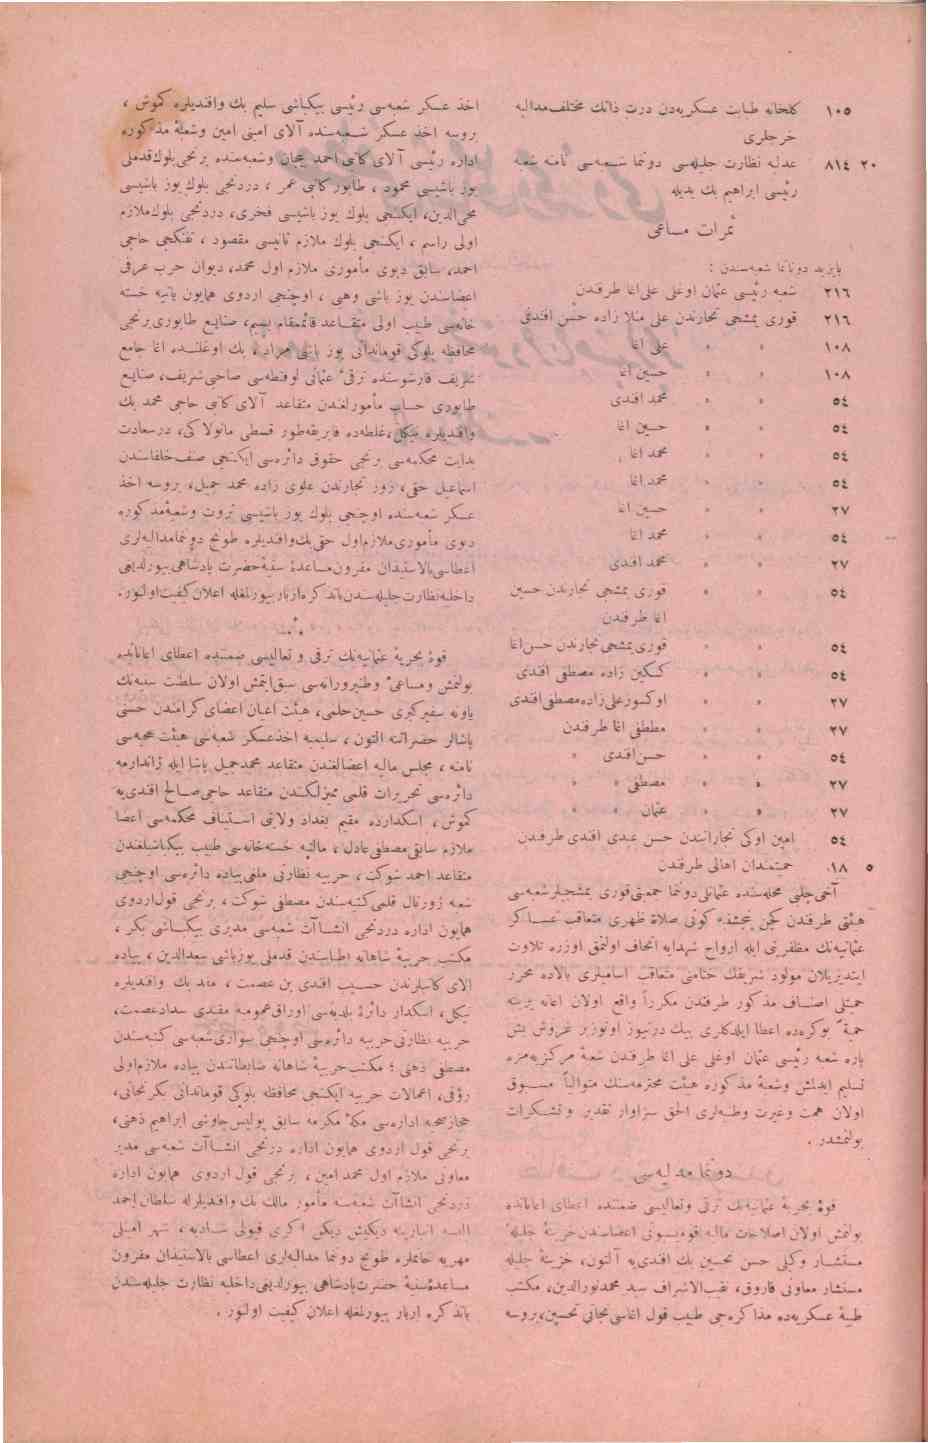 ١٠٥ كلخانه طبابت عسكريه‌دن درت ذاتك مختلف مداليه
خرجلری
٢٠ ٨١٤ عدليه نظارت جليله‌سی دونما شعبه‌سی نامنه شعبه
رئيسی ابراهيم بك يديله
ثمرات مساعی
بايزيد دوناما شعبه‌سندن :
٢١٦ شعبه رئيسی عثمان اوغلی علی اغا طرفندن
٢١٦ قوری يمشجی تجارندن علی منلا زاده حسن افندی
١٠٨ » » علی اغا
١٠٨ » » حسين اغا
٥٤ » » محمد افندی
٥٤ » » حسين اغا
٥٤ » » محمد اغا
٥٤ » » محمد اغا
٢٧ » » حسين اغا
٥٤ » » محمد اغا
٢٧ » » محمد افندی
٥٤ » » قوری يمشجی تجارندن حسين
اغا طرفندن
٥٤ » » قوری يمشجی تجارندن حسن اغا
٥٤ » » كسكين زاده مصطفی افندی
٢٧ » » اوكسوز علی زاده مصطفی افندی
٢٧ » » مصطفی اغا طرفندن
٥٤ » » حسن افندی »
٢٧ » » مصطفی » »
٢٧ » » عثمان » »
٥٤ امين اوكی تجاراتندن حسن عبدی افندی طرفندن
٥ ١٨٠ حميتمندان اهالی طرفندن
آخی چلبی محله‌سنده عثمانلی دونما جمعيتی قوری يمشجيلر شعبه‌سی
هيئتی طرفندن كچن پنجشنبه كونی صلاة ظهری متعاقب عساكر
عثمانيه‌نك مظفريتی ايله ارواح شهدايه اتحاف اولنمق اوزره تلاوت
ايتديريلان مولود شريفك ختامنی متعاقب اساميلری بالاده محرر
حميتلی اصناف مذكور طرفندن مكرراً واقع اولان اعانه يرينه
حمية بوكره‌ده اعطا ايلدكلری بيك درتيوز اوتوزبر غروش بش
پاره شعبه رئيسی عثمان اوغلی علی اغا طرفندن شعبهٔ مركزيه‌مزه
تسليم ايدلمش وشعبهٔ مذكوره هيئت محترمه‌سنك متوالياً مسبوق
اولان همت وغيرت وطنيه‌لری الحق سزاوار تقدير وتشكرات
بولنمشدر .
دونما مداليه‌سی
قوهٔ بحريهٔ عثمانيه‌نك ترقی وتعاليسی ضمننده اعطای اعاناتده
بولنمش اولان اصلاحات ماليه قوميسيونی اعضاسندن خزينهٔ جليله
مستشار وكيلی حسن تحسين بك افندی‌يه آلتون، خزينهٔ جليله
مستشار معاونی فاروق، نقيب‌الاشراف سيد محمد نورالدين، مكتب
طبيهٔ عسكريه‌ده مذاكره‌جی طبيب قول اغاسی نجاتی تحسين، بروسه
اخذ عسكر شعبه‌سی رئيسی بيكباشی سليم بك وافنديلره كموش ،
بروسه اخذ عسكر شعبه‌سنده آلای امينی امين وشعبهٔ مذكوره
اداره رئيسی آلای كاتبی احمد نيجان وشعبه‌سنده برنجی بلوك قدملی
يوز باشيسی محمود ، طابور كاتبی عمر ، دردنجی بلوك يوز باشيسی
محی‌الدين، ايكنجی بلوك يوز باشيسی فخری، دردنجی بلوك ملازم
اولی راسم ، ايكنجی بلوك ملازم ثانيسی مقصود ، تفنكجی حاجی
احمد، سابق دپوی مأموری ملازم اول محمد، ديوان حرب عرفی
اعضاسندن يوز باشی وهبی ، اوچنجی اردوی همايون يانيه خسته
خانه‌سی طبيب اولی متقاعد قائممقام بسيم، صنايع طابوری برنجی
محافظه بلوكی قوماندانی يوز باشی مراد ، بك اوغلنده اغا جامع
شريف قارشوسنده ترقیٔ عثمانی لوقنطه‌سی صاحبی شريف، صنايع
طابوری حساب مأمورلغندن متقاعد آلای كاتبی حاجی محمد بك
وافنديلره نيكل، غلطه‌ده فابريقه‌طور قسطی مانولاكی، درسعادت
بدايت محكمه‌سی برنجی حقوق دائره‌سی ايكنجی صنف خلفاسندن
اسماعيل حقی، زور تجارندن علوی زاده محمد جميل، بروسه اخذ
عسكر شعبه‌سنده اوچنجی بلوك يوز باشيسی ثروت وشعبهٔ مذكوره
دپوی مأموری ملازم اول حقی بك وافنديلره طونج دونما مداليه‌لری
اعطاسی بالاستيذان مقرون مساعدهٔ سنيهٔ حضرت پادشاهی بيورلديغی
داخليه نظارت جليله‌سندن باتذكره ازبار بيورلمغله اعلان كيفيت اولنور.
قوهٔ بحريهٔ عثمانيه‌نك ترقی و تعاليسی ضمننده اعطای اعاناتده
بولنمش ومساعیٔ وطنپرورانه‌سی سبق ايتمش اولان سلطنت سنيه‌نك
ويانه سفير كبيری حسين حلمی، هيئت اعيان اعضای كرامندن حسنی
پاشالر حضراتنه التون ، سليميه اخذ عسكر شعبه‌سی هيئت عجيبه‌سی
نامنه ، مجلس ماليه اعضالغندن متقاعد محمد جميل پاشا ايله ژاندارمه
دائره‌سی تحريرات قلمی مميزلكندن متقاعد حاجی صالح افندی‌يه
كموش، اسكدارده مقيم بغداد ولايتی استيناف محكمه‌سی اعضا
ملازم سابقی مصطفی عادل ، ماليه خسته‌خانه‌سی طبيب بيكباشيلغندن
متقاعد احمد شوكت ، حربيه نظارتی ملغی پياده دائره‌سی اوچنجی
شعبه ژورنال قلمی كتبه‌سندن مصطفی شوكت ، برنجی قول اردوی
همايون اداره دردنجی انشاآت شعبه‌سی مديری بيكباشی بكر ،
مكتب حربيهٔ شاهانه اطباسندن قدملی يوزباشی سعدالدين ، پياده
الای كاتبلرندن حسيب افندی بن عصمت ، ماند بك وافنديلره
نيكل، اسكدار دائرهٔ بلديه‌سی اوراق عموميه مقيدی سداد عصمت،
حربيه نظارتی حربيه دائره‌سی اوچنجی سواری شعبه‌سی كتبه‌سندن
مصطفی ذهنی ؛ مكتب حربيهٔ شاهانه ضابطانندن پياده ملازم اولی
رؤفی، اعمالات حربيه ايكنجی محافظه بلوكی قوماندانی بكر نجاتی،
حجاز صحيه اداره‌سی مكهٔ مكرمه سابق پوليس چاوشی ابراهيم ذهنی،
برنجی قول اردوی همايون اداره درنجی انشاآت شعبه‌سی مدير
معاونی ملازم اول محمد امين ، برنجی قول اردوی همايون اداره
دردنجی انشاآت شعبه‌سه مأمور مالك بك وافنديلرله سلطان احمد
البسه انبارينه ديكيش ديكن اكری قپولی شاديه ، شهر امينلی
مهريه خانملره طونج دونما مداليه‌لری اعطاسی بالاستيذان مقرون
مساعدهٔ سنيهٔ حضرت پادشاهی بيورلديغی داخليه نظارت جليله‌سندن
باتذكره ازبار بيورلمغله اعلان كيفيت اولنور .